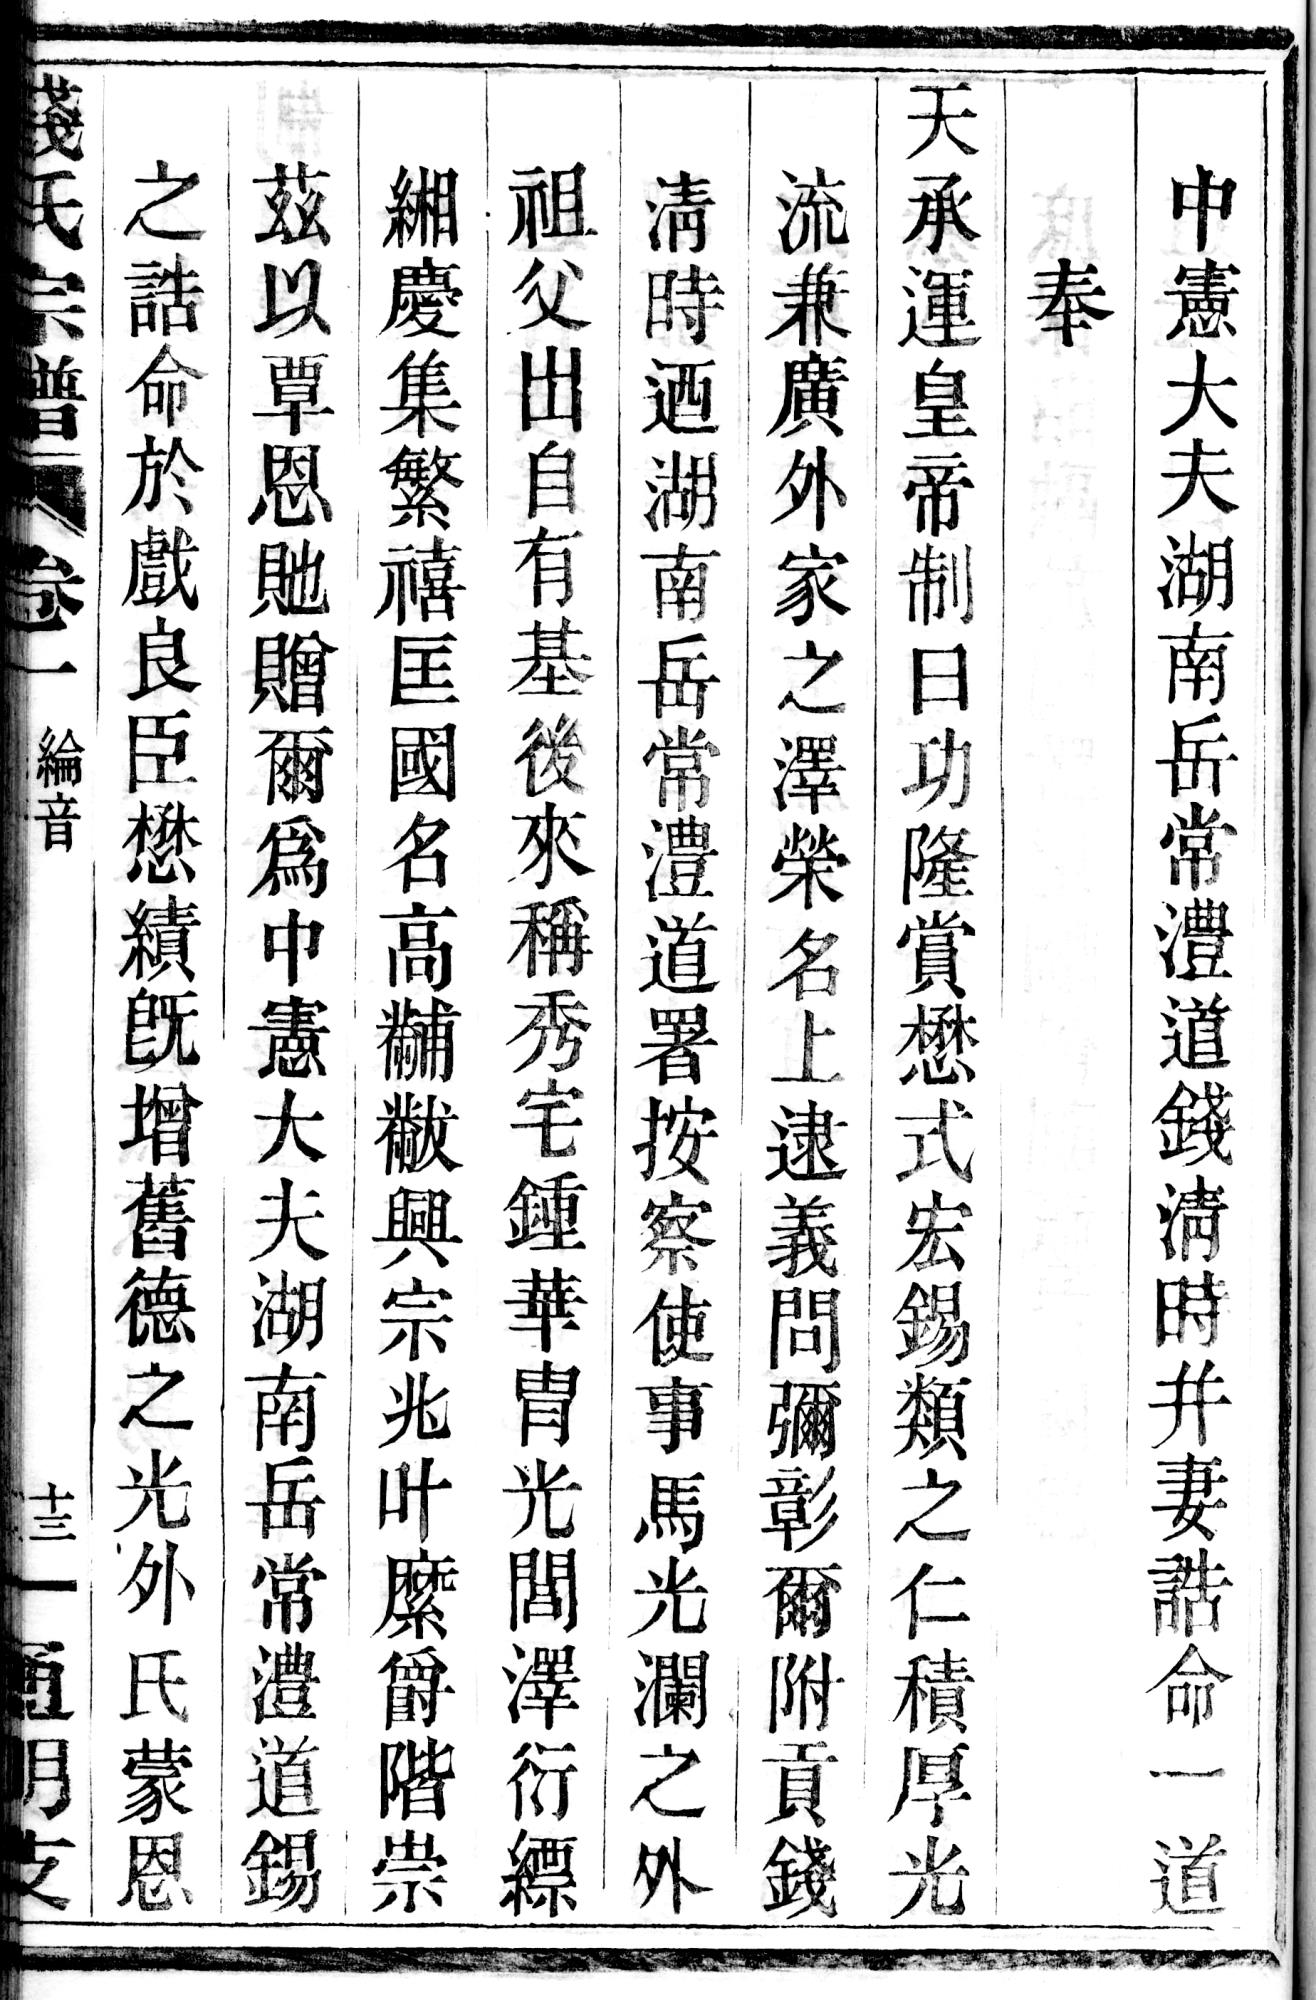 中憲大夫湖南岳常澧道錢淸時并妻誥命一道
奉
天承運皇帝制曰功隆賞懋式宏錫類之仁積厚光
流兼廣外家之澤榮名上逮義問彌彰爾附貢錢
淸時迺湖南岳常澧道署按察使事馬光瀾之外
祖父出自有基後來稱秀宅鍾華胄光閭澤衍縹
緗慶集繁禧匡國名高黼黻興宗兆叶縻爵階崇
茲以覃恩貤贈爾爲中憲大夫湖南岳常澧道錫
之誥命於戲良臣懋績旣增舊德之光外氏蒙恩
錢氏宗譜 卷一 綸音 十三 通明支